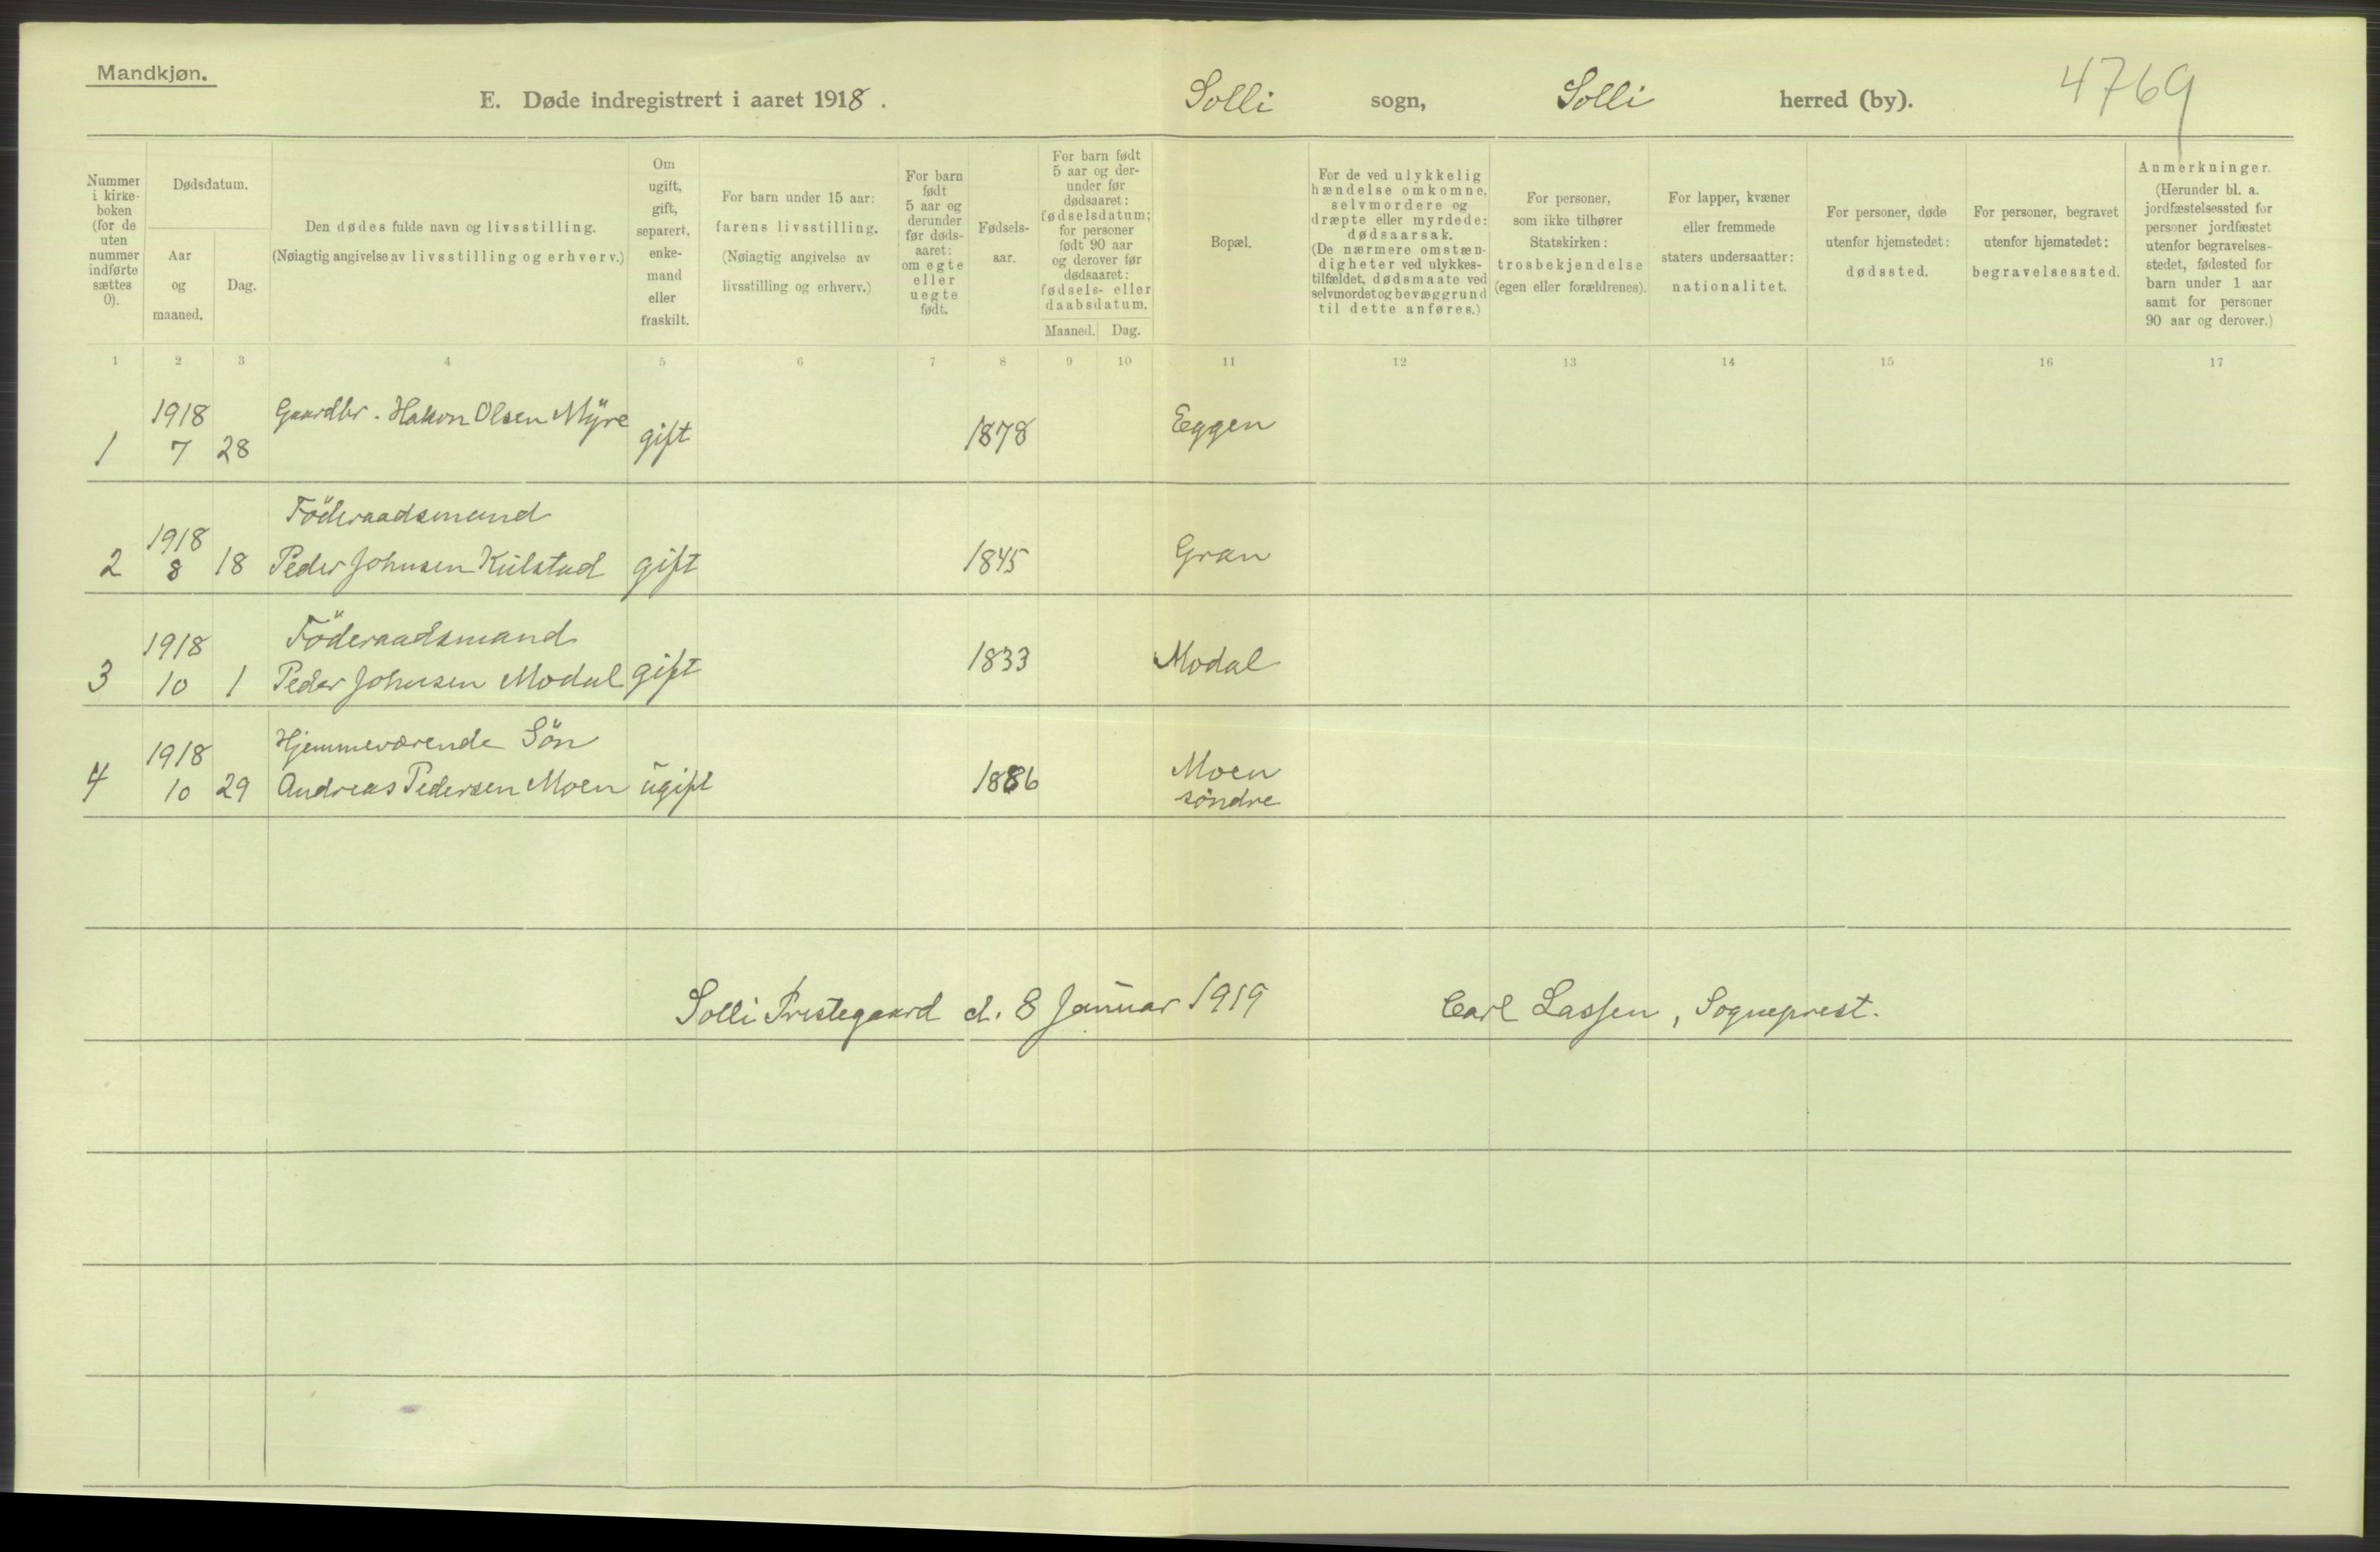 Mandkjøn.
E. Døde indregistrert i aaret 1918.
Solli sogn, Solli herred (by).
4769
Nummer
i kirke-
boken
(for de
uten
nummer
indførte
sættes
0).
Dødsdatum.
Aar
og
maaned.
Dag.
Den dødes fulde navn og livsstilling.
(Nøiagtig angivelse av livsstilling og erhverv.)
Om
ugift,
gift,
separert,
enke-
mand
eller
fraskilt.
For barn under 15 aar:
farens livsstilling.
(Nøiagtig angivelse av
livsstilling og erhverv.)
For barn
født
5 aar og
derunder
før døds-
aaret:
om egte
eller
uegte
født.
Fødsels-
aar.
For barn født
5 aar og der-
under før
dødsaaret:
fødselsdatum;
for personer
født 90 aar
og derover før
dødsaaret:
fødsels- eller
daabsdatum.
Maaned. Dag.
Bopæl.
For de ved ulykkelig
hændelse omkomne,
selvmordere og
dræpte eller myrdede:
dødsaarsak.
(De nærmere omstæn-
digheter ved ulykkes-
tilfældet, dødsmaate ved
selvmordet og bevæggrund
til dette anføres.)
For personer,
som ikke tilhører
Statskirken:
trosbekjendelse
(egen eller forældrenes).
For lapper, kvæner
eller fremmede
staters undersaatter:
nationalitet.
For personer, døde
utenfor hjemstedet:
dødssted.
For personer, begravet
utenfor hjemstedet:
begravelsessted.
Anmerkninger.
(Herunder bl. a.
jordfæstelsessted for
personer jordfæstet
utenfor begravelses-
stedet, fødested for
barn under 1 aar
samt for personer
90 aar og derover.)
1 2 3 4 5 6 7 8 9 10 11 12 13 14 15 16 17
1918 Gaardbr. Hakon Olsen Myre Eggen
1 7 28 gift 1878
Föderaadsmand
1918
2 8 18 Peder Johnsen Kulstad gift 1845 Gran
1918 Föderaadsmand
3 10 1 Peder Johnsen Modal gift 1833 Modal
1918 Hjemmeværende Sön
4 10 29 Andreas Pedersen Moen ugift 1886 Moen
söndre
Solli Prestegaard d. 8 Januar 1919 Carl Lassen, Sogneprest.